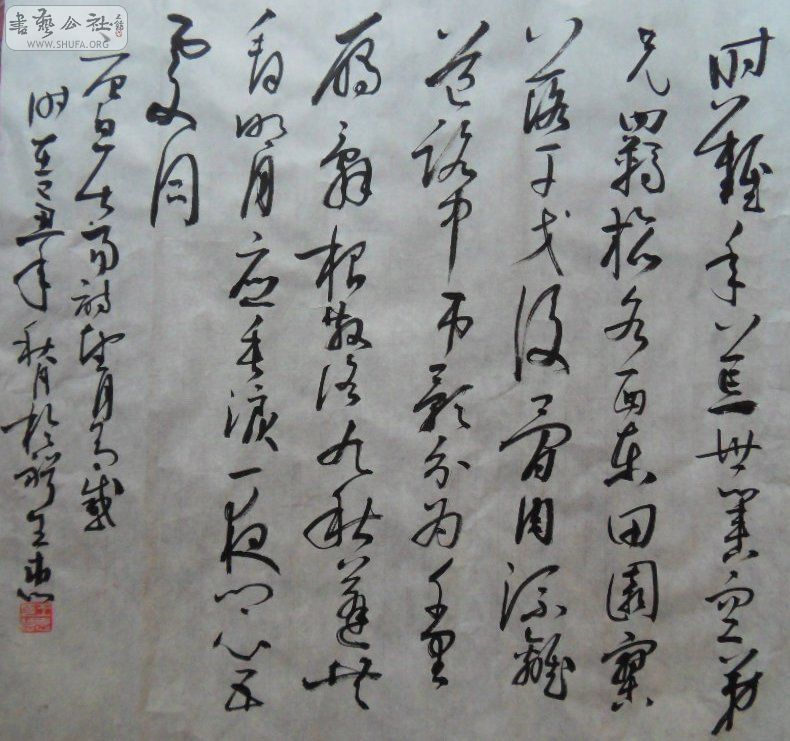 書藝公社
WWW.SHUFA.ORG
时難年荒世業空弟
兄羁旅各西东田園寥
落干戈後骨肉流離
道路中吊影分为千里
雁辞根散作九秋蓬共
看明月应垂淚一夜乡心五
处同
白居易诗望月有感
时在丑年秋月於王